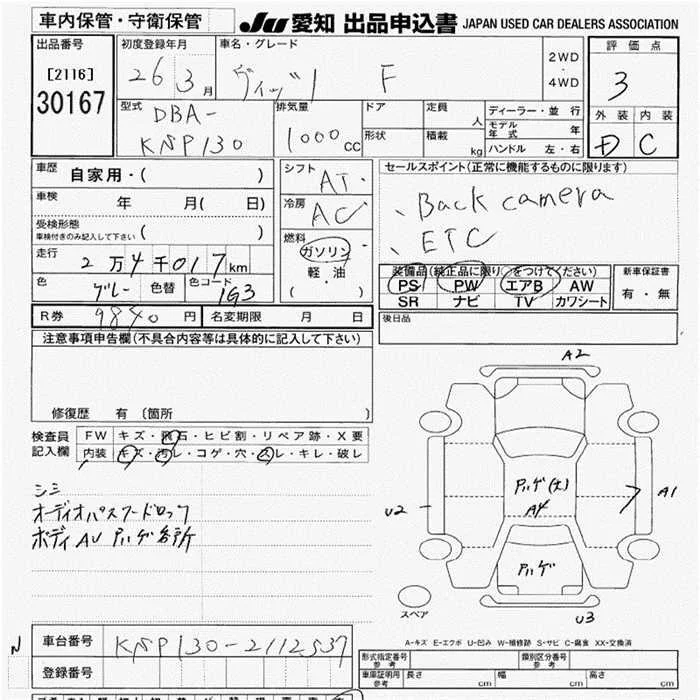 車内保管・守衛保管 JU 愛知 出品申込書 JAPAN USED CAR DEALERS ASSOCIATION
出品番号 初度登録年月 車名・グレード 2WD・4WD 評価点
[2116] 26 3月 ヴィッツ F 3
30167
型式 DBA- KSP130 排気量 1000cc ドア 定員 人 ディーラー・並行 外装 内装
形状 積載 kg モデル年式 年 D C
ハンドル 左・右
車歴 自家用・( ) シフト AT セールスポイント(正常に機能するものに限ります)
車検 年 月( 日) 冷房 AC 、Back camera
受検形態 車検付きのみ記入して下さい ( ) 、ETC
走行 2万4千017km 燃料 ガソリン・軽・油 ( ) 装備品(純正品に限り○をつけてください) 新車保証書
色 グレー 色替 色コード 1G3 PS PW エアB AW 有・無
SR ナビ TV カワシート
R券 9840円 名変期限 月 日 後日品
注意事項申告欄(不具合内容等は具体的に記入して下さい)
修復歴 有〔箇所 〕
検査員記入欄 FW キズ・飛石・ヒビ割・リペア跡・X要
内装 キズ・汚レ・コゲ・穴・スレ・キレ・破レ
シミ
オーディオパスワードロック
ボディAU ハゲ各所
A2
U2
A1
ハゲ(大)
A4
ハゲ
U3
スペア
A-キズ E-エクボ U-凹み W-補修跡 S-サビ C-腐食 XX-交換済
N 車台番号 KSP130-2112537
登録番号
形式指定番号 参考 類別区分番号 参考
車庫証明用 参考 長さ cm 幅 cm 高さ cm